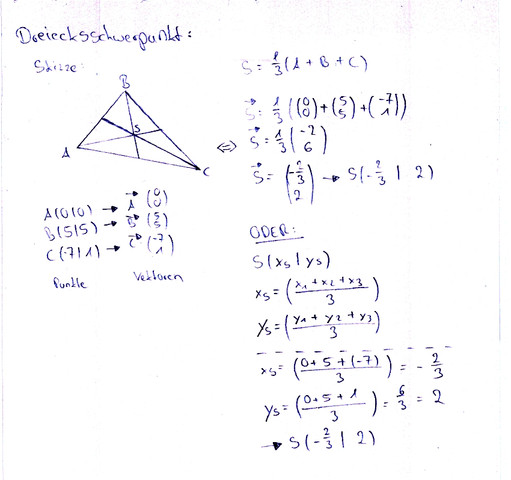 Dreiecksschwerpunkt:
Skizze:
B
S
A
C
A(0|0) → A⃗ (0 0)
B(5|5) → B⃗ (5 5)
C(-7|1) → C⃗ (-7 1)
Punkte Vektoren
S = 1/3 (A + B + C)
⇔
S⃗ = 1/3 ((0 0) + (5 5) + (-7 1))
S⃗ = 1/3 (-2 6)
S⃗ = (-2/3 2) → S(-2/3 | 2)
ODER:
S(xs | ys)
xs = ((x1 + x2 + x3)/3)
ys = ((y1 + y2 + y3)/3)
xs = ((0 + 5 + (-7))/3) = -2/3
ys = ((0 + 5 + 1)/3) = 6/3 = 2
→ S(-2/3 | 2)